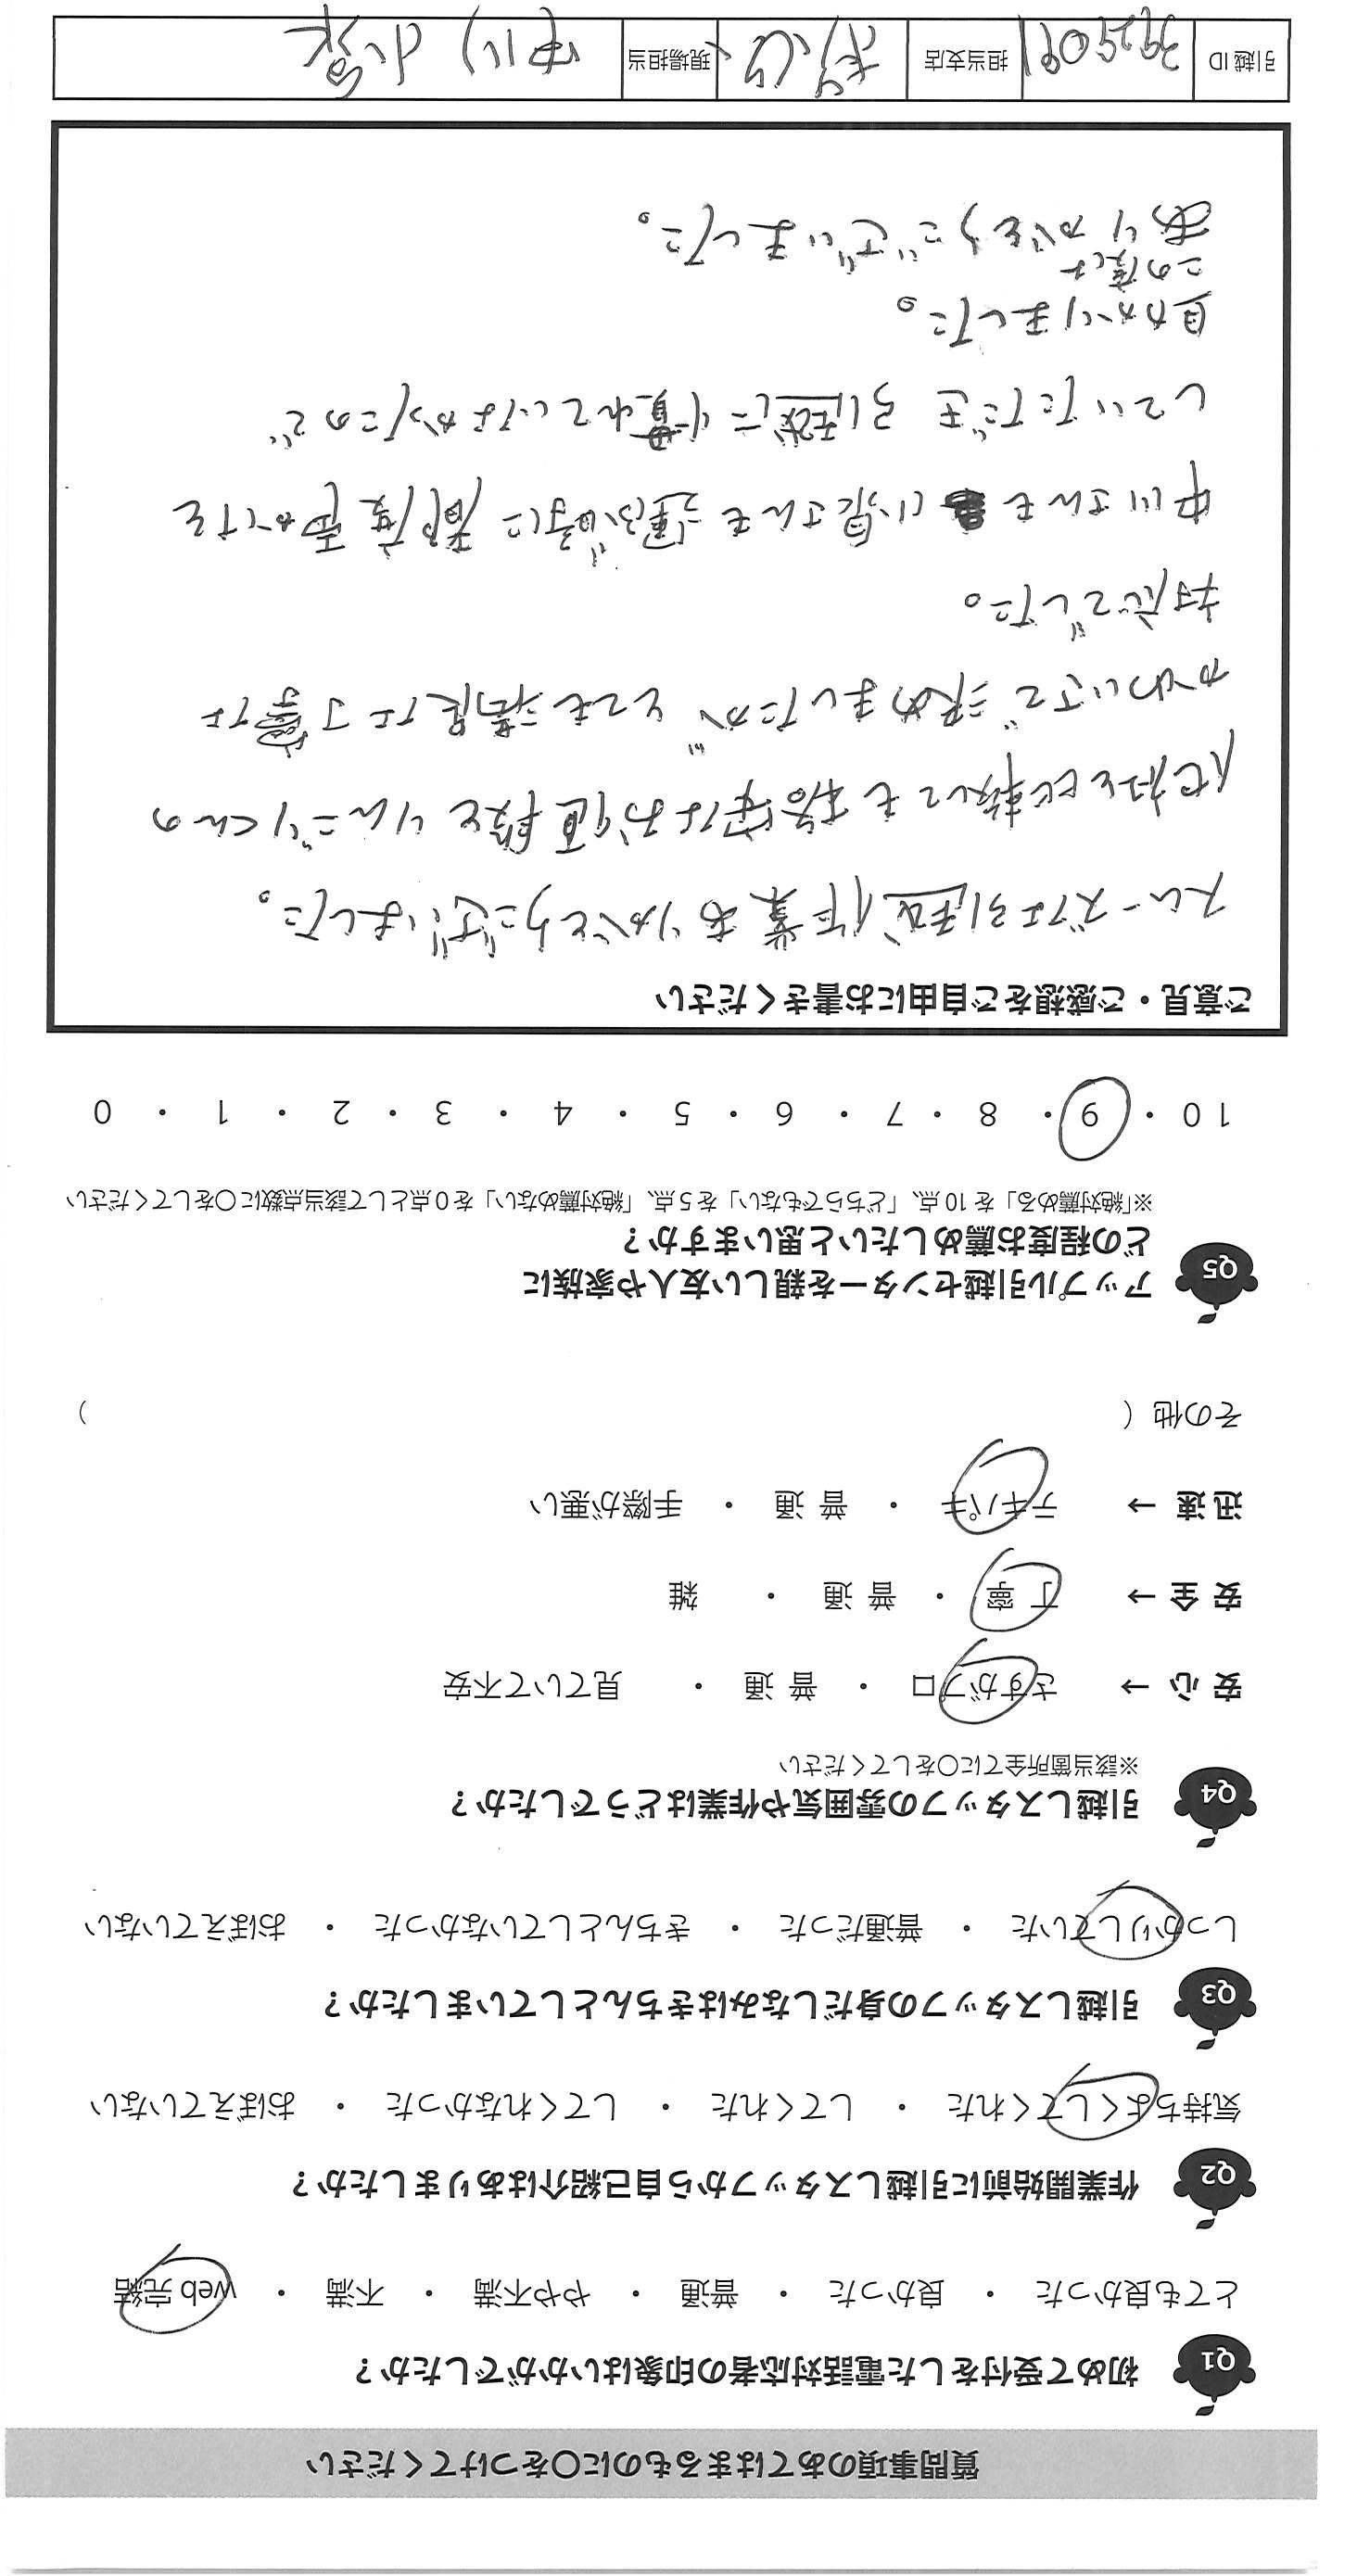 質問事項のあてはまるものに〇をつけてください
Q1 初めて受付をした電話対応者の印象はいかがでしたか？
とても良かった ・ 良かった ・ 普通 ・ やや不満 ・ 不満 ・ web完結
Q2 作業開始前に引越しスタッフから自己紹介はありましたか？
気持ちよくしてくれた ・ してくれた ・ してくれなかった ・ おぼえていない
Q3 引越しスタッフの身だしなみはきちんとしていましたか？
しっかりしていた ・ 普通だった ・ きちんとしていなかった ・ おぼえていない
Q4 引越しスタッフの雰囲気や作業はどうでしたか？
※該当箇所全てに〇をしてください
安心→ さすがプロ ・ 普通 ・ 見ていて不安
安全→ 丁寧 ・ 普通 ・ 雑
迅速→ テキパキ ・ 普通 ・ 手際が悪い
その他（ ）
Q5 アップル引越センターを親しい友人や家族に
どの程度お薦めしたいと思いますか？
※「絶対薦める」を10点、「どちらでもない」を5点、「絶対薦めない」を0点として該当点数に〇をしてください
10 ・ 9 ・ 8 ・ 7 ・ 6 ・ 5 ・ 4 ・ 3 ・ 2 ・ 1 ・ 0
ご意見・ご感想をご自由にお書きください
スムーズな引越作業ありがとうございました。
他社と比較しても格安なお値段とりんごりくんの
かわいさで決めましたが とても満足な丁寧な
対応でした。
中川さんも小泉さんも運ぶ時に都度声かけを
していただき 引越に慣れていなかったので
助かりました。
この度は
ありがとうございました。
引越ID 3925091 担当支店 現場担当 中川 小泉